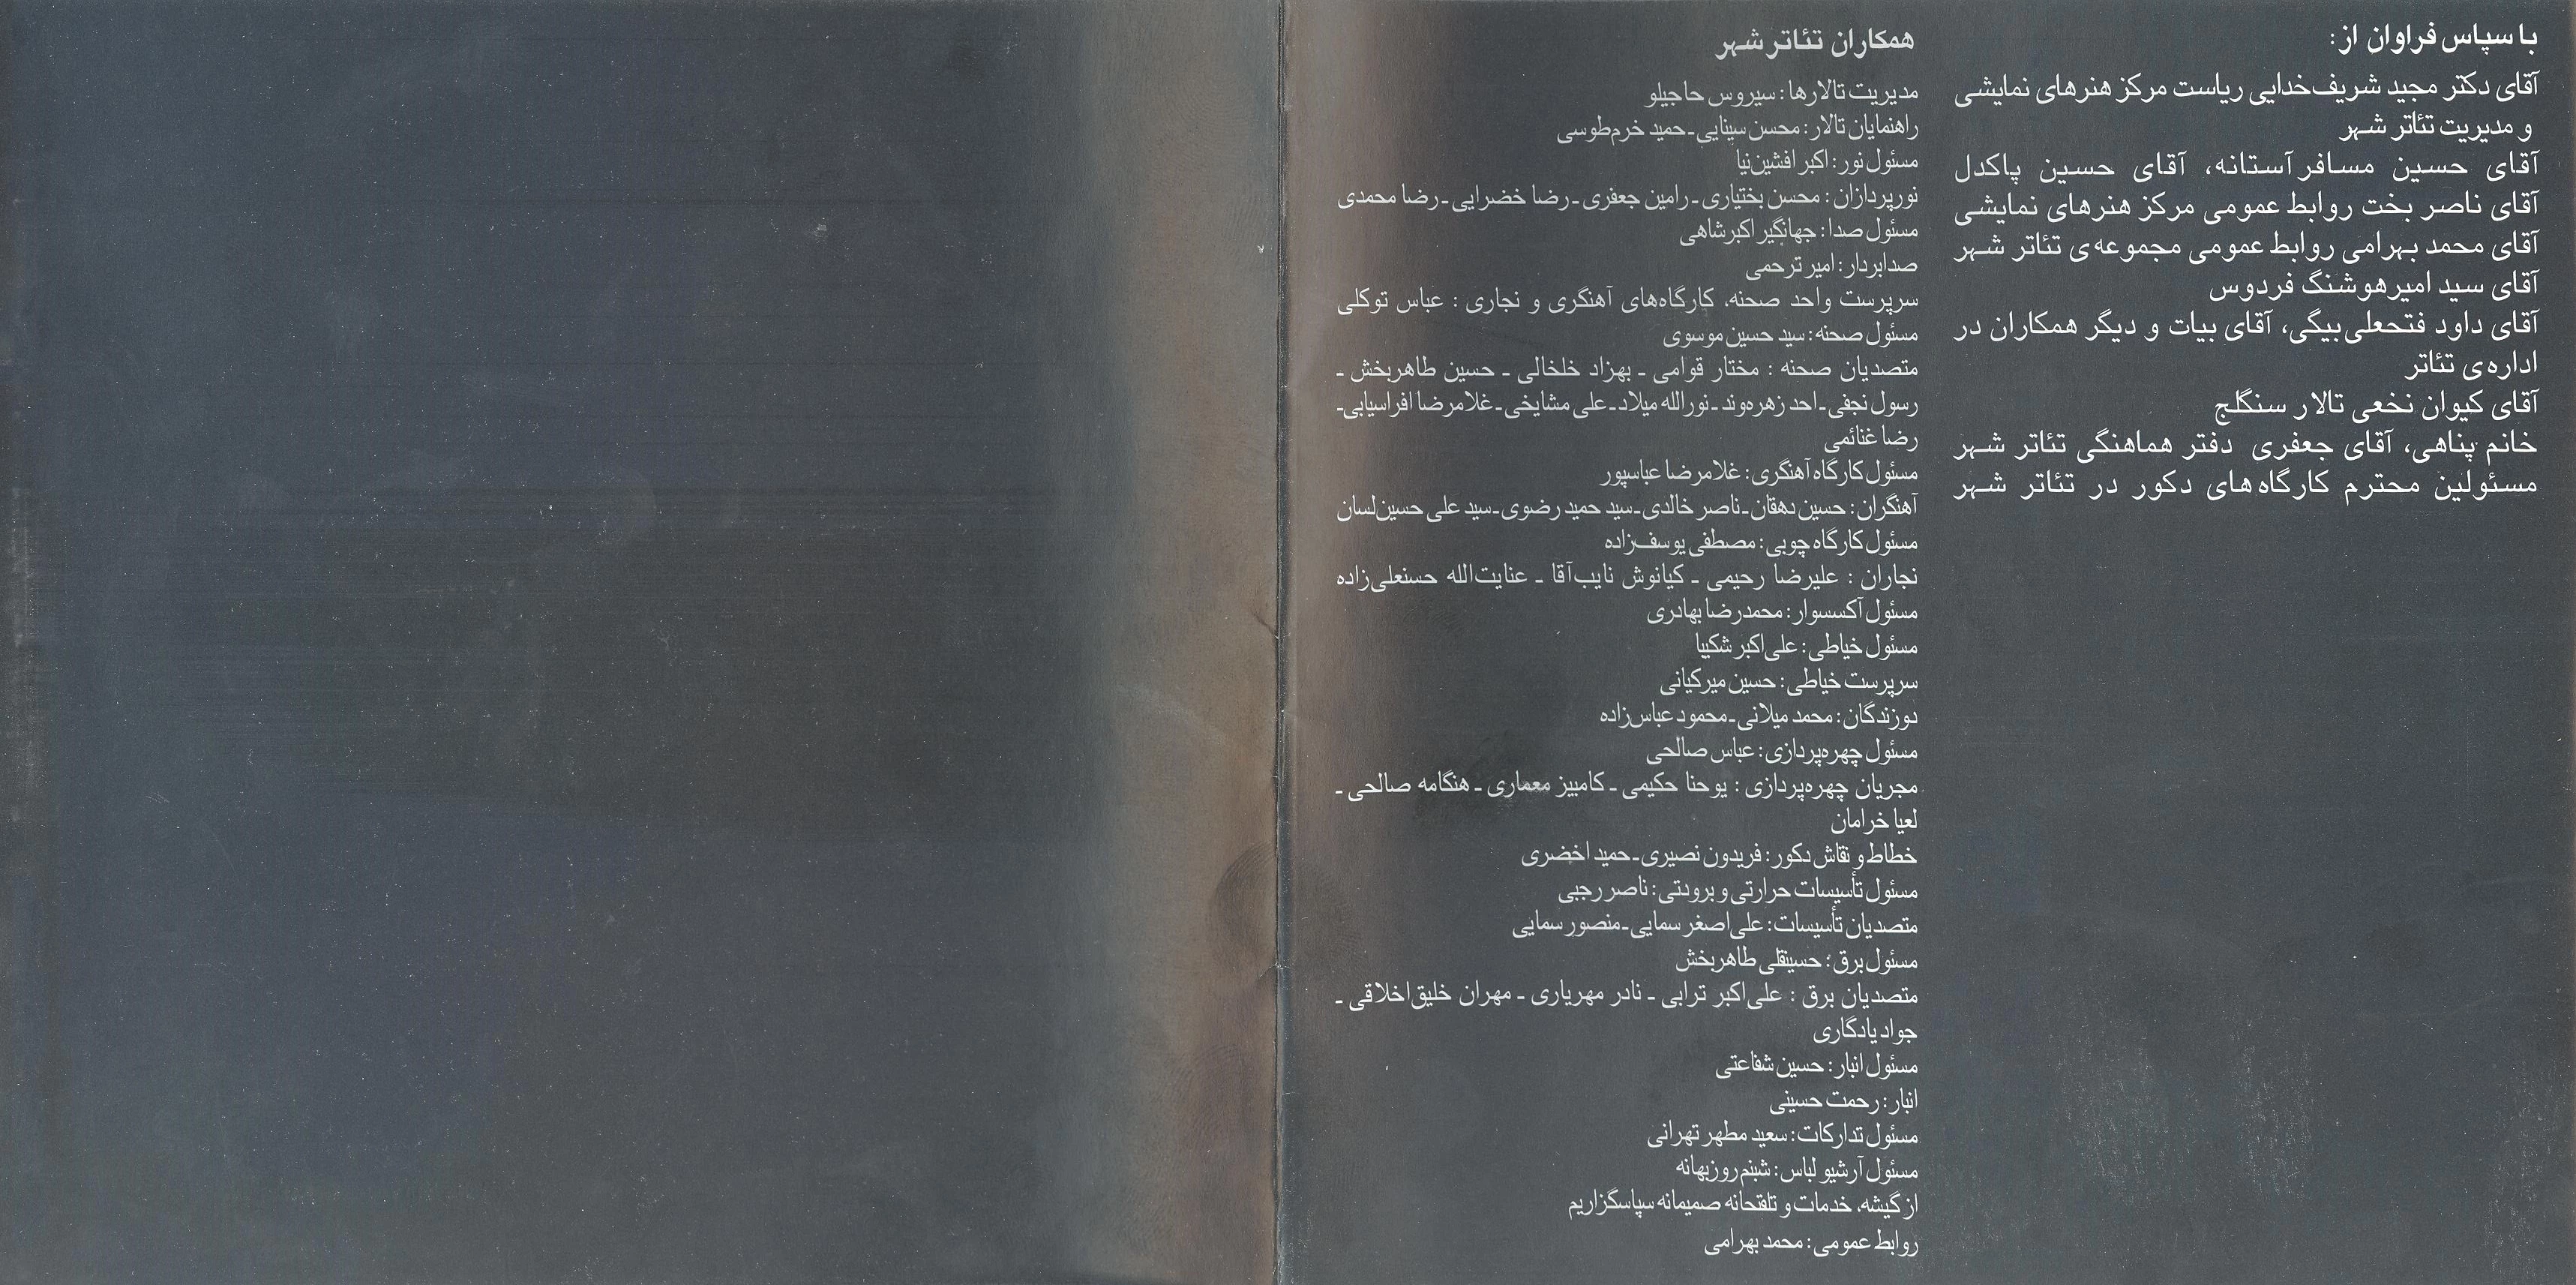 با سپاس فراوان از:
آقای دکتر مجید شریف‌خدایی ریاست مرکز هنرهای نمایشی
و مدیریت تئاتر شهر
آقای حسین مسافرآستانه، آقای حسین پاکدل
آقای ناصر بخت روابط عمومی مرکز هنرهای نمایشی
آقای محمد بهرامی روابط عمومی مجموعه‌ی تئاتر شهر
آقای سید امیرهوشنگ فردوس
آقای داود فتحعلی‌بیگی، آقای بیات و دیگر همکاران در
اداره‌ی تئاتر
آقای کیوان نخعی تالار سنگلج
خانم پناهی، آقای جعفری دفتر هماهنگی تئاتر شهر
مسئولین محترم کارگاه‌های دکور در تئاتر شهر
همکاران تئاتر شهر
مدیریت تالارها: سیروس حاجیلو
راهنمایان تالار: محسن سینایی-حمید خرم‌طوسی
مسئول نور: اکبر افشین‌نیا
نورپردازان: محسن بختیاری-رامین جعفری-رضا خضرایی-رضا محمدی
مسئول صدا: جهانگیر اکبرشاهی
صدابردار: امیر ترحمی
سرپرست واحد صحنه، کارگاه‌های آهنگری و نجاری : عباس توکلی
مسئول صحنه: سید حسین موسوی
متصدیان صحنه : مختار قوامی - بهزاد خلخالی - حسین طاهربخش -
رسول نجفی-احد زهره‌وند-نورالله میلاد-علی مشایخی-غلامرضا افراسیابی-
رضا غنائمی
مسئول کارگاه آهنگری: غلامرضا عباسپور
آهنگران: حسین دهقان-ناصر خالدی-سید حمید رضوی-سید علی حسین‌لسان
مسئول کارگاه چوبی: مصطفی یوسف‌زاده
نجاران : علیرضا رحیمی - کیانوش نایب‌آقا - عنایت‌الله حسنعلی‌زاده
مسئول آکسسوار: محمدرضا بهادری
مسئول خیاطی: علی‌اکبر شکیبا
سرپرست خیاطی: حسین میرکیانی
دوزندگان: محمد میلانی-محمود عباس‌زاده
مسئول چهره‌پردازی: عباس صالحی
مجریان چهره‌پردازی : یوحنا حکیمی - کامبیز معماری - هنگامه صالحی -
لعیا خرامان
خطاط و نقاش دکور: فریدون نصیری-حمید اخضری
مسئول تأسیسات حرارتی و برودتی: ناصر رجبی
متصدیان تأسیسات: علی‌اصغر سمایی-منصور سمایی
مسئول برق: حسینقلی طاهربخش
متصدیان برق : علی‌اکبر ترابی - نادر مهریاری - مهران خلیق‌اخلاقی -
جواد یادگاری
مسئول انبار: حسین شفاعتی
انبار: رحمت حسینی
مسئول تدارکات: سعید مطهر تهرانی
مسئول آرشیو لباس: شبنم روزبهانه
از گیشه، خدمات و تلفنخانه صمیمانه سپاسگزاریم
روابط عمومی: محمد بهرامی